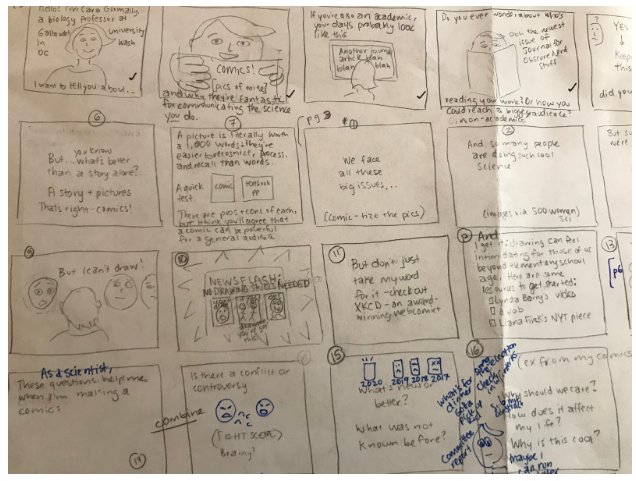 Hello! I'm Cara Gormally,
a biology professor at
Gallaudet University
in Wash
DC
I want to tell you about...
Comics!
[pics of mine]
and why they're fantastic
for communicating the science
you do.
If you're also an academic,
your days probably look
like this
Another journal
article blah
blah blah
Do you ever worry about who's
Ooh the newest
issue of
Journal for
Obscure Nerd
Stuff
reading your work? Or how you
could reach a bigger audience?
Yes
Keep
this
did you
6
you know
But... what's better
than a story alone?
A story + pictures
That's right - comics!
7
A picture is literally worth
a 1,000 words; they're
easier to recognize, process,
and recall than words.
A quick
test
comic
There are pros + cons of each,
but I think you'll agree that
a comic can be powerful
for a general audience
We face
all these
big issues...
(Comic-tize the pics)
And so many people
are doing such cool
science
(images via 500 women)
Sci
But su
were
9
But I can't draw!
10
NEWSFLASH:
NO DRAWING SKILLS NEEDED
11
But don't just
take my word
for it - check out
XKCD - an award-
winning webcomic
And
I get it; drawing can feel
intimidating for those of us
beyond elementary school
age. Here are some
resources to get started:
Lynda Barry's video
Liana Finck's NYT piece
13
As a scientist,
These questions help me
when I'm making a
comic:
14
combine
Is there a conflict or
controversy
(FIGHT SCENE)
15
2020 2019 2018 2017
What's new or
better?
What was not
known before?
16
(ex from my comics
Why should we care?
How does it affect
my life?
Why is this cool?
maybe I
can run
committee
report